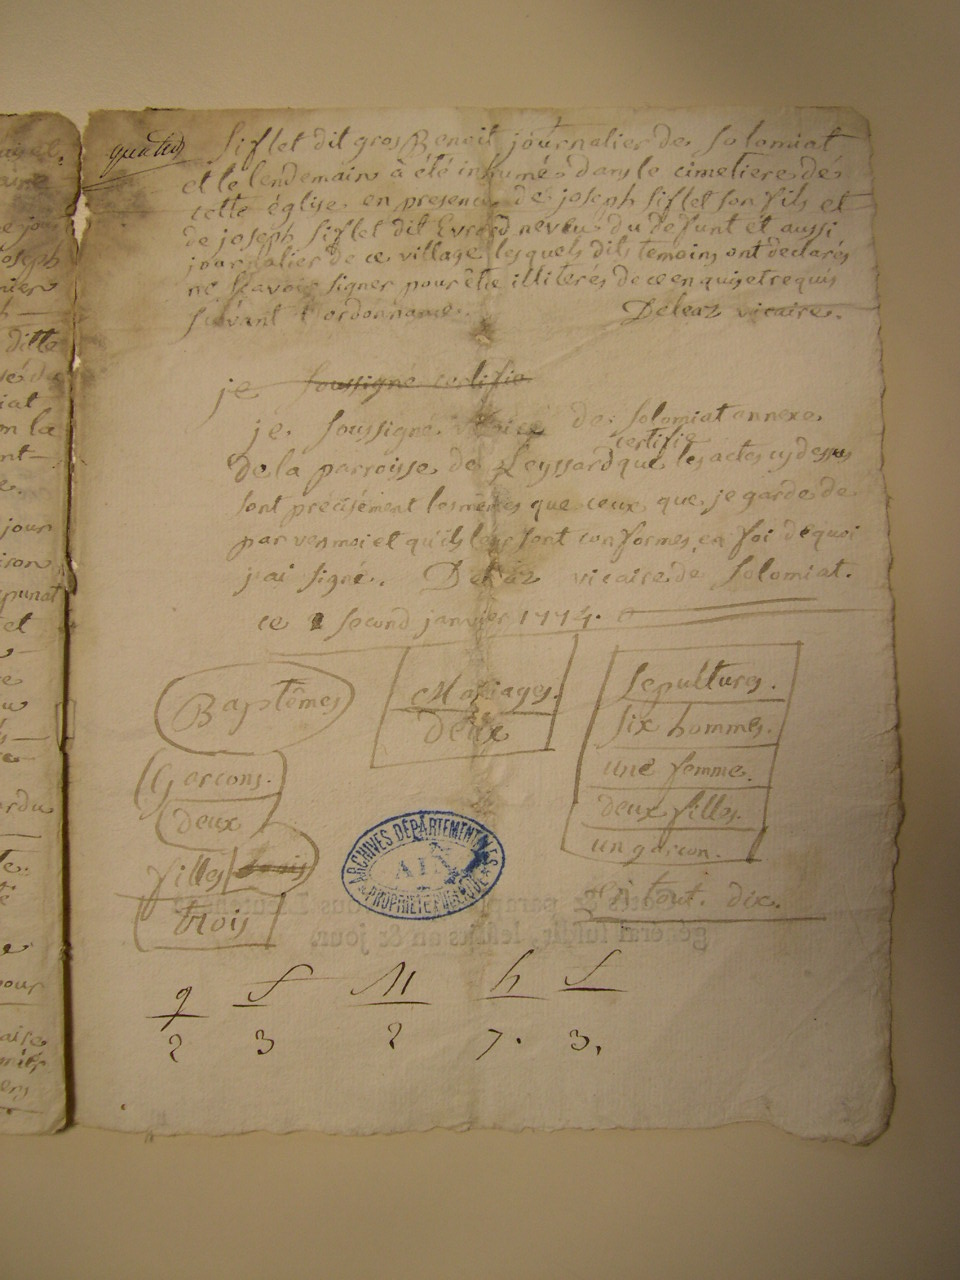 quatre
Siflet dit gros Benoit journalier de Solomiat
et le lendemain à été inhumé dans le cimetiere de
cette église en presence de joseph Siflet son fils et
de joseph Siflet dit Evrard neveu du defunt et aussi
journalier de ce village lesquels dits temoins ont declarés
ne sçavoir signer pour être illiterés de ce enquis et requis
suivant l'ordonnance. Delear vicaire.
je soussigné certifie
je soussigné vicaire de Solomiat annexe
certifie
de la parroisse de Leyssard que les actes cy dessus
sont précisément les mêmes que ceux que je garde de
par vers moi et qu'ils leur sont conformes, en foi de quoi
j'ai signé. Delear vicaire de Solomiat.
ce second janvier 1774.
Baptêmes
Mariages.
Sepultures.
deux
six hommes.
Garcons.
une femme.
deux
deux filles.
filles trois
un garcon.
trois
tout. dix.
ARCHIVES DÉPARTEMENTALES
AIN
PROPRIÉTÉ PUBLIQUE
& paraphé
général jour.
g f M h f
2 3 2 7. 3.